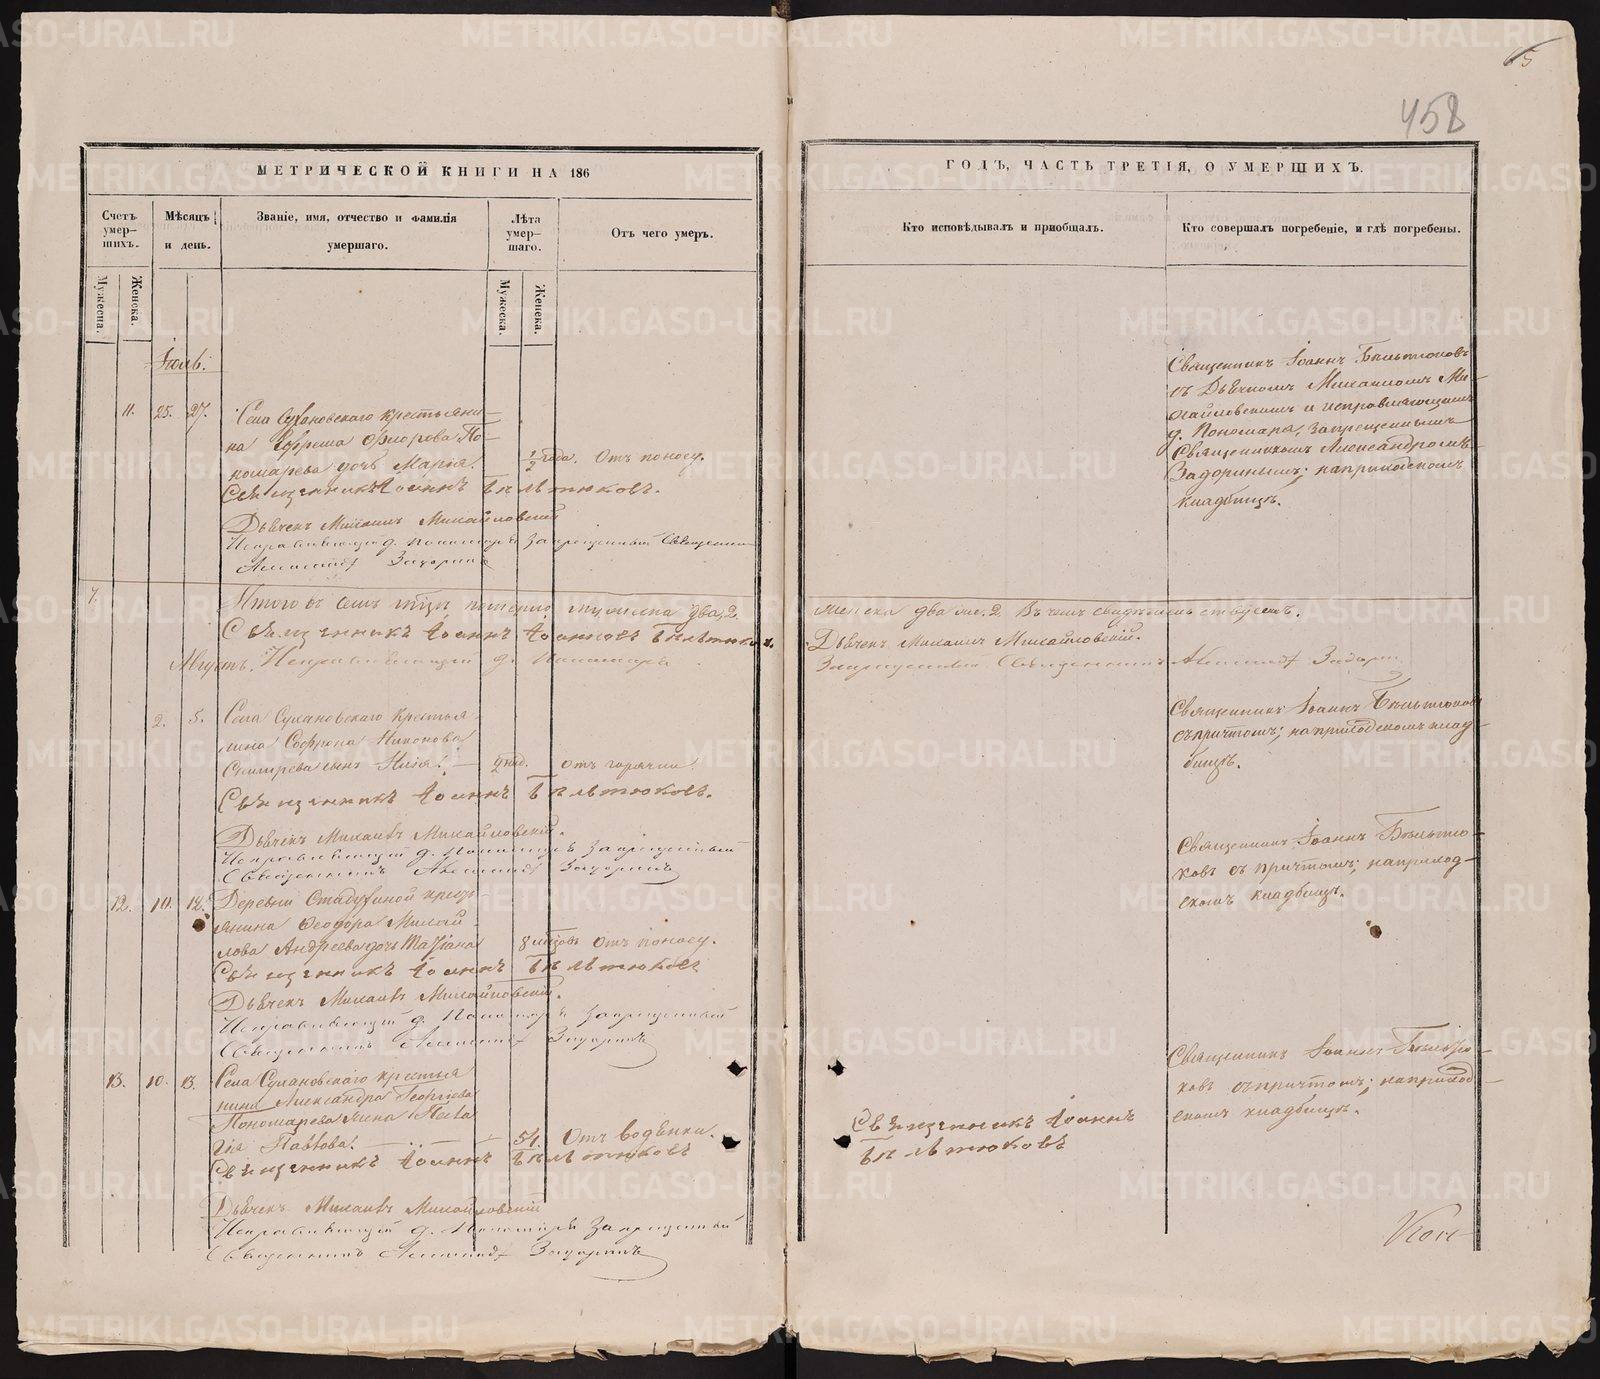 65
458
МЕТРИЧЕСКОЙ КНИГИ НА 186
Счетъ умер–шихъ.
Мѣсяцъ и день.
Званіе, имя, отчество и фамилія умершаго.
Лѣта умер–шаго.
Отъ чего умеръ.
Мужеска.
Женска.
Мужеска.
Женска.
Іюль.
11. 25. 27. Села Сулановскаго крестьяни–
на Ефрема Ѳлорова По–
номарева дочь Марія. 1/2 года. Отъ поносу.
Священникъ Іоаннъ Бѣльтюковъ.
Дьячекъ Михаилъ Михайловскій
Исправляющій д. пономаря запрещенный священникъ
Александръ Задоринъ
Итого въ семъ м͠цѣ померло мужеска два, 2.
Священникъ Іоаннъ Іоанновъ Бѣльтюковъ.
Августъ. Исправляющій д. Пономаря
2. 5. Села Сулановскаго крестья
нина Софрона Никонова
сынъ Илія. 2 нед. отъ горячки.
Священникъ Іоаннъ Бѣльтюковъ.
Дьячекъ Михаилъ Михайловскій.
Исправляющій д. Пономаря запрещенный
Священникъ Александръ Задоринъ
12. 10. 12. Деревни Стадухиной крест
янина Ѳеодора Михай
лова Андреева дочь Татіана 8 мѣсяцовъ Отъ поносу.
Священникъ Іоаннъ Бѣльтюковъ
Дьячекъ Михаилъ Михайловскій.
Исправляющій д. Пономаря запрещенный
Священникъ Александръ Задоринъ
13. 10. 13. Села Сулановскаго крестья
нина Александра Георгіева
Пономарева жена Пела
гія Павлова. 54. Отъ водянки.
Священникъ Іоаннъ Бѣльтюковъ
Дьячекъ Михаилъ Михайловскій
Исправляющій д. Пономаря запрещенный
Священникъ Александръ Задоринъ
ГОДЪ, ЧАСТЬ ТРЕТІЯ, О УМЕРШИХЪ.
Кто исповѣдывалъ и пріобщалъ.
Кто совершалъ погребеніе, и гдѣ погребены.
Священникъ Іоаннъ Бѣльтюковъ
съ Дьячкомъ Михаиломъ Ми–
хайловскимъ и исправляющимъ
д. Пономаря, запрещеннымъ
Священникомъ Александромъ
Задоринымъ; на приходскомъ
кладбищѣ.
женска двѣ же, 2. Въ чемъ свидѣтельствуемъ.
Дьячекъ Михаилъ Михайловскій.
Запрещенный Священникъ Александръ Задоринъ
Священникъ Іоаннъ Бѣльтюковъ
съ причтомъ; на приходскомъ клад–
бищѣ.
Священникъ Іоаннъ Бѣльтю–
ковъ съ причтомъ; на приход–
скомъ кладбищѣ.
Священникъ Іоаннъ Бѣльтю–
ковъ съ причтомъ; на приход–
скомъ кладбищѣ.
Священникъ Іоаннъ
Бѣльтюковъ
METRIKI.GASO-URAL.RU